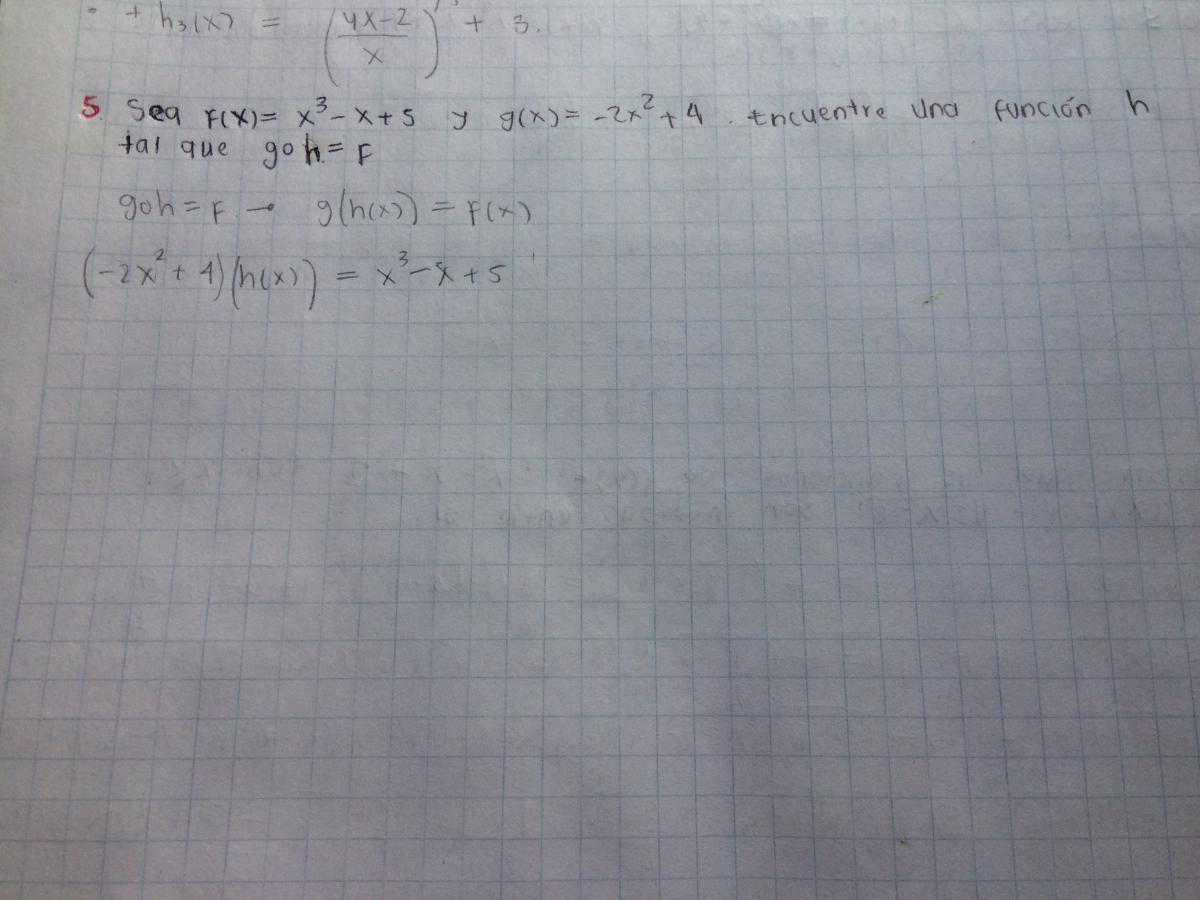 + h₃(x) = (4x-2/x)³ + 3.
5. Sea F(x)= x³-x+5 y g(x)= -2x²+4. Encuentre una función h
tal que goh = F
goh = F → g(h(x)) = F(x)
(-2x²+4)(h(x)) = x³-x+5